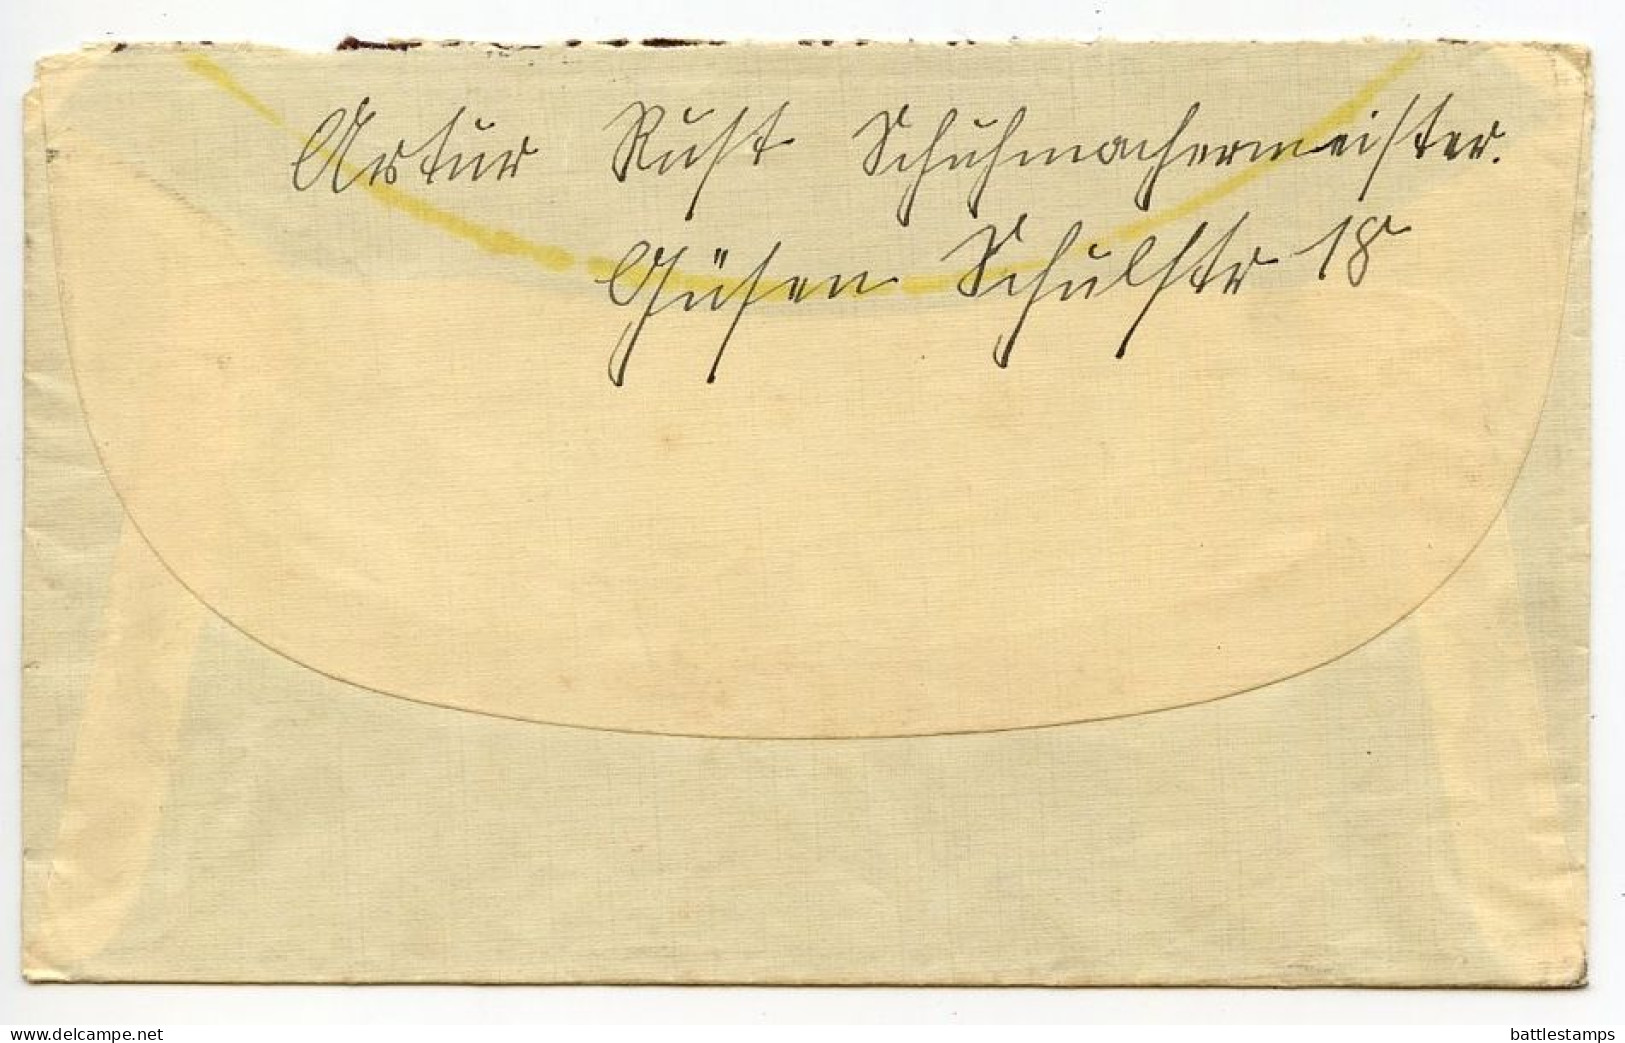 Artur Rust Schuhmachermeister.
Güsen Schulstr 18
www.delcampe.net
battlestamps